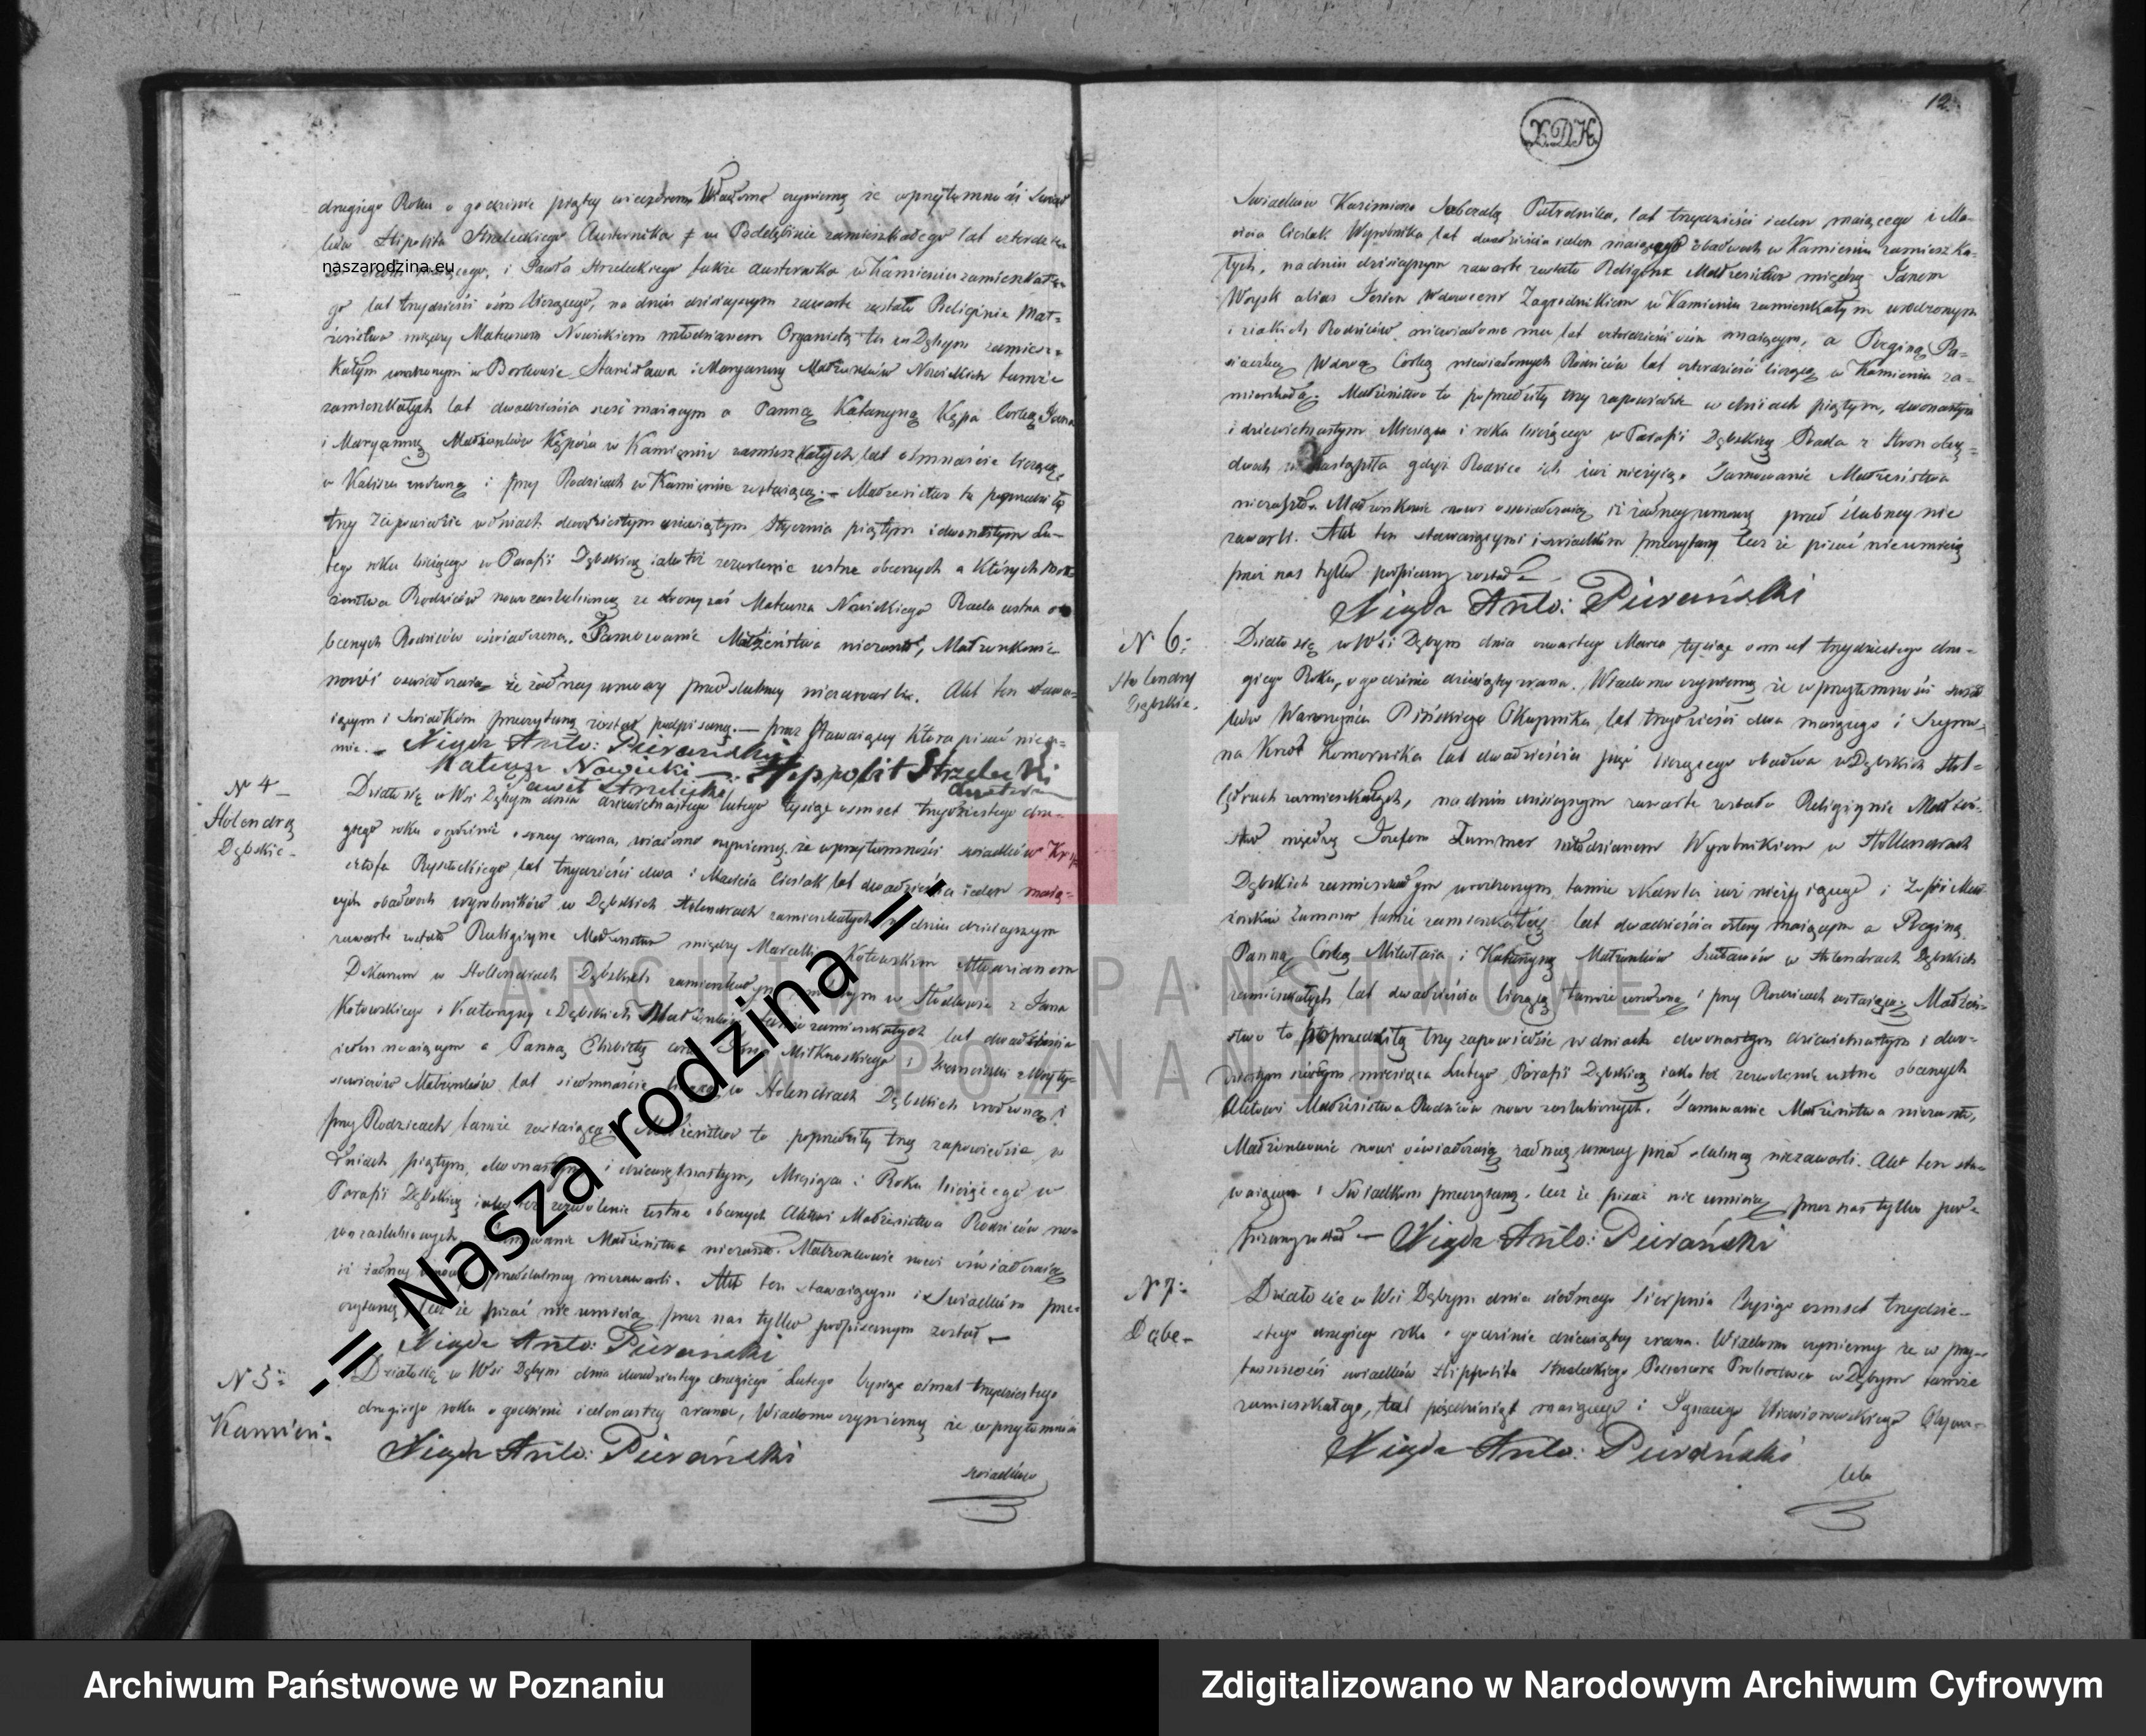 drugiego Roku o godzinie piątey wieczorem Wiadomo czynimy że w przytomności Świad
ków Hipolita Strzeleckiego Austernika w zamieszkałego lat
naszarodzina.eu
i Pawła Strzeleckiego także Austernika w Kamieniu zamieszkałe
go lat trzydzieści ośm liczącego, na dniu dzisieyszym zawarte zostało Religiinie Mał-
żeństwo między Mateuszem Nowickiem młodzianem Organistą tu w Dąbym zamiesz-
kałym urodzonym w Borkowie Stanisława i Maryanny Małżonków Nowickich tamże
zamieszkałych lat dwadzieścia sześć maiącym a Panną Katarzyną Kępa Corką Jana
i Maryanny Małżonków Kępów w Kamieniu zamieszkałych lat ośmnaście liczącą
w Kaliszu urodzoną i przy Rodzicach w Kamieniu zostaiącą. – Małżeństwo to poprzedziły
trzy Zapowiedzie w dniach dwudziestym dziewiątym Stycznia piątym i dwunastym Lu-
tego roku bieżącego w Parafii Dąbskiey iako też zezwolenie ustne obecnych a Których
Rodziców nowozaslubioney ze strony zaś Mateusza Nowickiego Rada ustna o
becnych Rodziców oświadczona. Tamowanie Małżeństwa nie zaszło, Małżonkowie
nowi oświadczaią że żadney umowy przedślubney nie zawarli. Akt ten stawa-
iącym i świadkom przeczytany został podpisany. — przez Stawaiący która pisać nieu-
mie. – Xiądz Anto: Pierański
Mateusz Nowicki – Hippolit Strzelecki
Paweł Strzelecki
N 4
Holendry
Dąbskie –
Działo się w Wsi Dąbym dnia dziewiętnastego Lutego tysiąc osmset trzydziestego dru-
giego roku o godzinie osmey zrana, wiadomo czyniemy, że w przytomności świadków Krzy
sztofa Ryszelkiego lat trzydzieści dwa i Macieia Cieslak lat dwadzieścia ieden maią-
cych obudwóch wyrobników w Dąbskich Holendrach zamieszkałych na dniu dzisieyszym
zawarte zostało Religiyne Małżeństwo między Marcellim Kotowskim Młodzianem
w Hollendrach Dąbskich zamieszkałym w z Jana
Kotowskiego i Katarzyny z Dąbskich Małżonków tamże zamieszkałych lat dwadzieścia
ieden maiącym a Panną Elzbietą
Małżonków lat siedmnaście w Holendrach Dąbskich urodzoną i
przy Rodzicach tamże zostaiącą. Małżeństwo to poprzedziły trzy zapowiedzie w
dniach piątym, dwunastym i dziewiętnastym, Miesiąca i Roku bieżącego w
Parafii Dąbskiey iako też zezwolenie ustne obecnych Aktowi Małżeństwa Rodziców no-
wozaslubionych. Tamowanie Małżeństwa nie zaszło. Małżonkowie nowi oświadczaią
iż żadney umowy przedślubney niezawarli. Akt ten stawaiącym i Świadkom prze-
czytany, lecz że pisać nie umieią przez nas tylko podpisanym został –
Xiądz Anto: Pierański
N 5:
Kamień.
Działo się w Wsi Dąbym dnia dwudziestego drugiego Lutego tysiąc osmset trzydziestego
drugiego roku o godzinie iedenastey zrana, Wiadomo czyniemy że w przytomności
Xiądz Anto: Pierański
świadków
·=|| Nasza rodzina =||·
12.
X.D.K.
Swiadków Kazimierza lat trzydzieści ieden maiącego i Ma-
cieia Cieslak Wyrobnika lat dwadzieścia ieden maiącego obudwóch w Kamieniu zamieszka-
łych, na dniu dzisieyszym zawarte zostało Religiine Małżeństwo między Janem
Woysk alias Jesien Wdowcem Zagrodnikiem w Kamieniu zamieszkałym urodzonym
z iakich Rodziców niewiadomo mu lat czterdzieści ośm maiącym, a Reginą
Wdową Corką niewiadomych Rodziców lat czterdzieści liczącą w Kamieniu za-
mieszkałą. Małżeństwo to poprzedziły trzy zapowiedzie w dniach piątym, dwunastym
i dziewiętnastym Miesiąca i roku bieżącego w Parafii Dąbskiey Rada z Stron oby-
dwuch nie nastąpiła gdyż Rodzice ich iuż nieżyią. Tamowanie Małżeństwa
niezaszło. Małżonkowie nowi oświadczaią iż żadney umowy przed ślubney nie
zawarli. Akt ten stawaiącymi i świadkom przeczytany lecz że pisać nieumieią
przez nas tylko podpisany został –
Xiądz Anto: Pierański
N 6:
Holendry
Dąbskie.
Działo się w Wsi Dąbym dnia czwartego Marca tysiąc osmset trzydziestego dru-
giego Roku, o godzinie dziewiątey zrana. Wiadomo czyniemy że w przytomności świad
ków Wawrzyńca Pińskiego Okupnika lat trzydzieści dwa maiącego i Szymo-
na Krod Komornika lat dwadzieścia pięć liczącego obudwu w Dąbskich Hol-
lędrach zamieszkałych, na dniu dzisieyszym zawarte zostało Religiynie Małżeń-
stwo między Jozefem Zummer młodzianem Wyrobnikiem w Hollendrach
Dąbskich zamieszkałym urodzonym tamże z Karola iuż nieżyiącego i Zofii Mał-
żonków Zummer tamże zamieszkałey lat dwadzieścia cztery maiącym a Reginą
Panną Corką Mikołaia i Katarzyny Małżonków w Holendrach Dąbskich
zamieszkałych lat dwadzieścia liczącą tamże urodzoną i przy Rodzicach zostaiącą. Małżeń-
stwo to poprzedziły trzy zapowiedzie w dniach dwunastym dziewiętnastym i dwu-
dziestym szóstym miesiąca Lutego Parafii Dąbskiey iako też zezwolenie ustne obecnych
Aktowi Małżeństwa Rodziców nowo zaslubionych. Tamowanie Małżeństwa niezaszło,
Małżonkowie nowi oświadczaią żadney umowy przed ślubney niezawarli. Akt ten sta-
waiącym i Świadkom przeczytany, lecz że pisać nie umieią przez nas tylko pod-
pisany został – Xiądz Anto: Pierański
N 7:
Dąbe –
Działo sie w Wsi Dąbym dnia siodmego Sierpnia Tysiąc osmset trzydzie-
stego drugiego roku o godzinie dziewiątey zrana. Wiadomo czyniemy że w przy-
tomności świadków Hippolita Strzeleckiego Possessora Probostwa w Dąbym tamże
zamieszkałego, lat pięćdziesiąt maiącego i Ignacego Wiewiorowskiego Obywa-
Xiądz Anto: Pierański
tela
ARCHIWUM PAŃSTWOWE
W POZNANIU
Archiwum Państwowe w Poznaniu
Zdigitalizowano w Narodowym Archiwum Cyfrowym